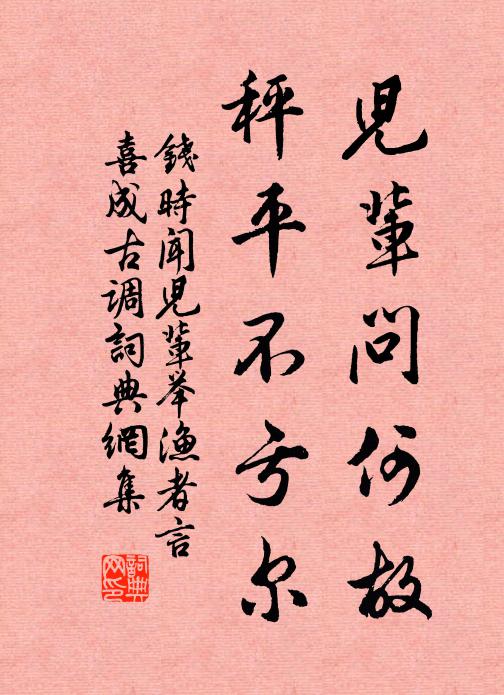 兒輩問何故
秤平不亏尔
錢時聞兒輩举漁者言
喜成古调詞典網集
詞典网印